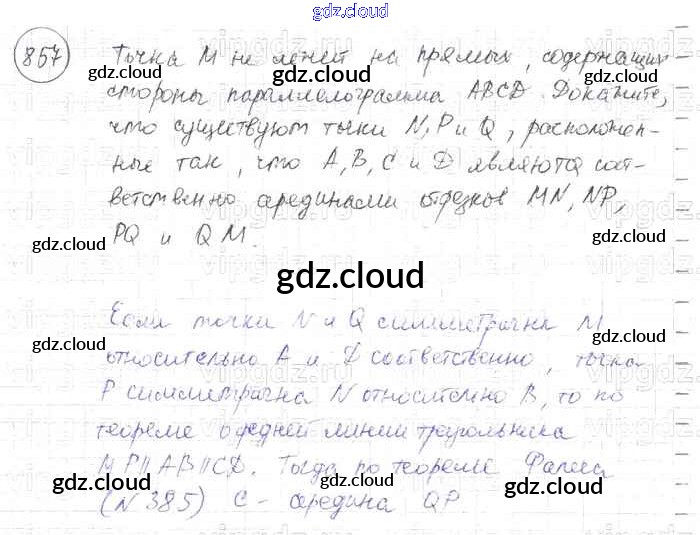 gdz.cloud
857 Точка M не лежит на прямых, содержащих
gdz.cloud gdz.cloud gdz.cloud
стороны параллелограмма ABCD. Докажите,
что существуют точки N, P и Q, расположен-
ные так, что A, B, C и D являются соот-
ветственно серединами отрезков MN, NP,
gdz.cloud gdz.cloud
PQ и QM.
gdz.cloud
Если точки N и Q симметричны M
gdz.cloud gdz.cloud
относительно A и D соответственно, точка
P симметрична N относительно B, то по
gdz.cloud gdz.cloud gdz.cloud
теореме о средней линии треугольника
MP || AB || CD. Тогда по теореме Фалеса
(N 385) C - середина QP.
gdz.cloud gdz.cloud gdz.cloud